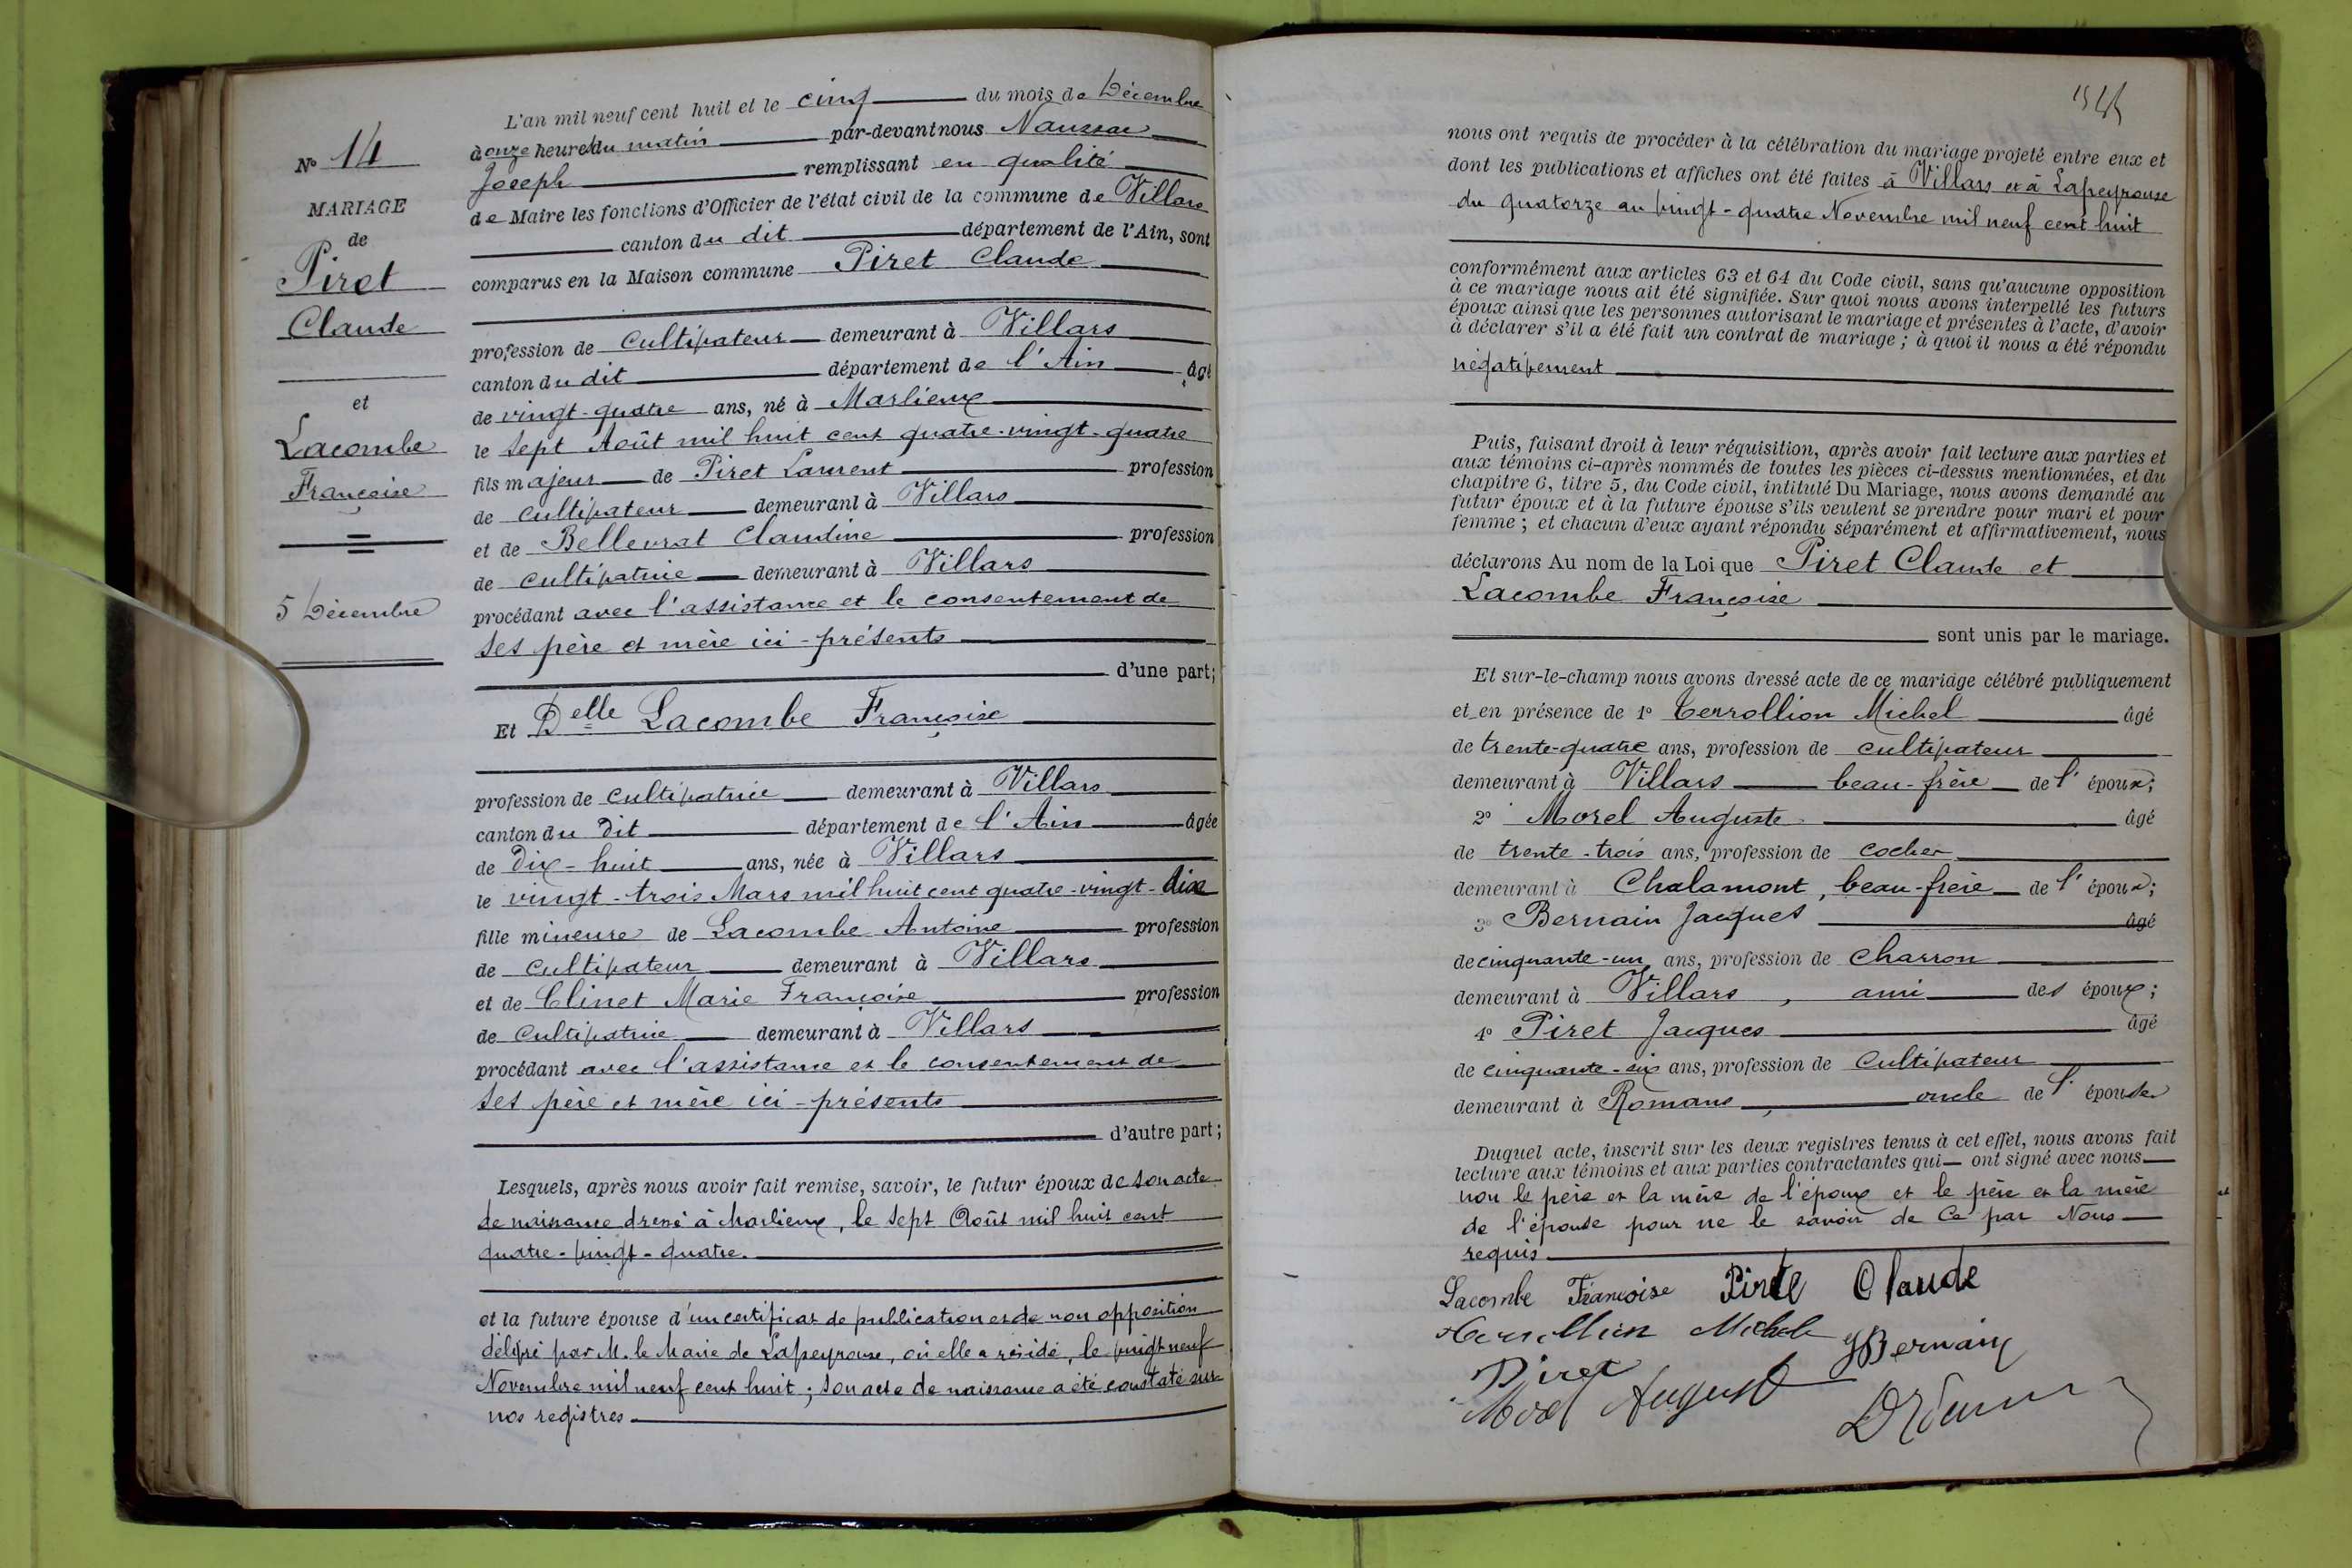 N° 14
MARIAGE
de
Piret
Claude
et
Lacombe
Françoise
5 Décembre
L'an mil neuf cent huit et le cinq du mois de Décembre
à onze heures du matin par-devant nous Naussac
Joseph remplissant en qualité
de Maire les fonctions d'Officier de l'état civil de la commune de Villars
canton du dit département de l'Ain, sont
comparus en la Maison commune Piret Claude
profession de Cultivateur demeurant à Villars
canton du dit département de l'Ain âgé
de vingt-quatre ans, né à Marlieux
le sept Août mil huit cent quatre-vingt-quatre
fils majeur de Piret Laurent profession
de cultivateur demeurant à Villars
et de Belleurat Claudine profession
de cultivatrice demeurant à Villars
procédant avec l'assistance et le consentement de
ses père et mère ici-présents
d'une part;
Et Delle Lacombe Françoise
profession de cultivatrice demeurant à Villars
canton du dit département de l'Ain âgée
de Dix-huit ans, née à Villars
le vingt-trois Mars mil huit cent quatre-vingt-dix
fille mineure de Lacombe Antoine profession
de cultivateur demeurant à Villars
et de Clinet Marie Françoise profession
de cultivatrice demeurant à Villars
procédant avec l'assistance et le consentement de
ses père et mère ici-présents
d'autre part;
Lesquels, après nous avoir fait remise, savoir, le futur époux de son acte
de naissance dressé à Marlieux, le sept Août mil huit cent
quatre-vingt-quatre.
et la future épouse d'un certificat de publication et de non opposition
délivré par M. le Maire de Lapeyrouse, où elle a résidé, le vingt neuf
Novembre mil neuf cent huit; son acte de naissance a été constaté sur
nos registres
nous ont requis de procéder à la célébration du mariage projeté entre eux et
dont les publications et affiches ont été faites à Villars et à Lapeyrouse
du quatorze au vingt-quatre Novembre mil neuf cent huit
conformément aux articles 63 et 64 du Code civil, sans qu'aucune opposition
à ce mariage nous ait été signifiée. Sur quoi nous avons interpellé les futurs
époux ainsi que les personnes autorisant le mariage et présentes à l'acte, d'avoir
à déclarer s'il a été fait un contrat de mariage; à quoi il nous a été répondu
négativement
Puis, faisant droit à leur réquisition, après avoir fait lecture aux parties et
aux témoins ci-après nommés de toutes les pièces ci-dessus mentionnées, et du
chapitre 6, titre 5, du Code civil, intitulé Du Mariage, nous avons demandé au
futur époux et à la future épouse s'ils veulent se prendre pour mari et pour
femme; et chacun d'eux ayant répondu séparément et affirmativement, nous
déclarons Au nom de la Loi que Piret Claude et
Lacombe Françoise
sont unis par le mariage.
Et sur-le-champ nous avons dressé acte de ce mariage célébré publiquement
et en présence de 1° Cerrollion Michel âgé
de trente-quatre ans, profession de cultivateur
demeurant à Villars beau-frère de l'époux;
2° Morel Auguste âgé
de trente-trois ans, profession de cocher
demeurant à Chalamont, beau-frère de l'époux;
3° Bernain Jacques âgé
de cinquante-un ans, profession de charron
demeurant à Villars, ami des époux;
4° Piret Jacques âgé
de cinquante-six ans, profession de Cultivateur
demeurant à Romans, oncle de l'épouse
Duquel acte, inscrit sur les deux registres tenus à cet effet, nous avons fait
lecture aux témoins et aux parties contractantes qui ont signé avec nous
non le père et la mère de l'époux et le père et la mère
de l'épouse pour ne le savoir de Ce par Nous
requis.
Lacombe Françoise Pirte Claude
Michel JBernain
Piret
Morel August